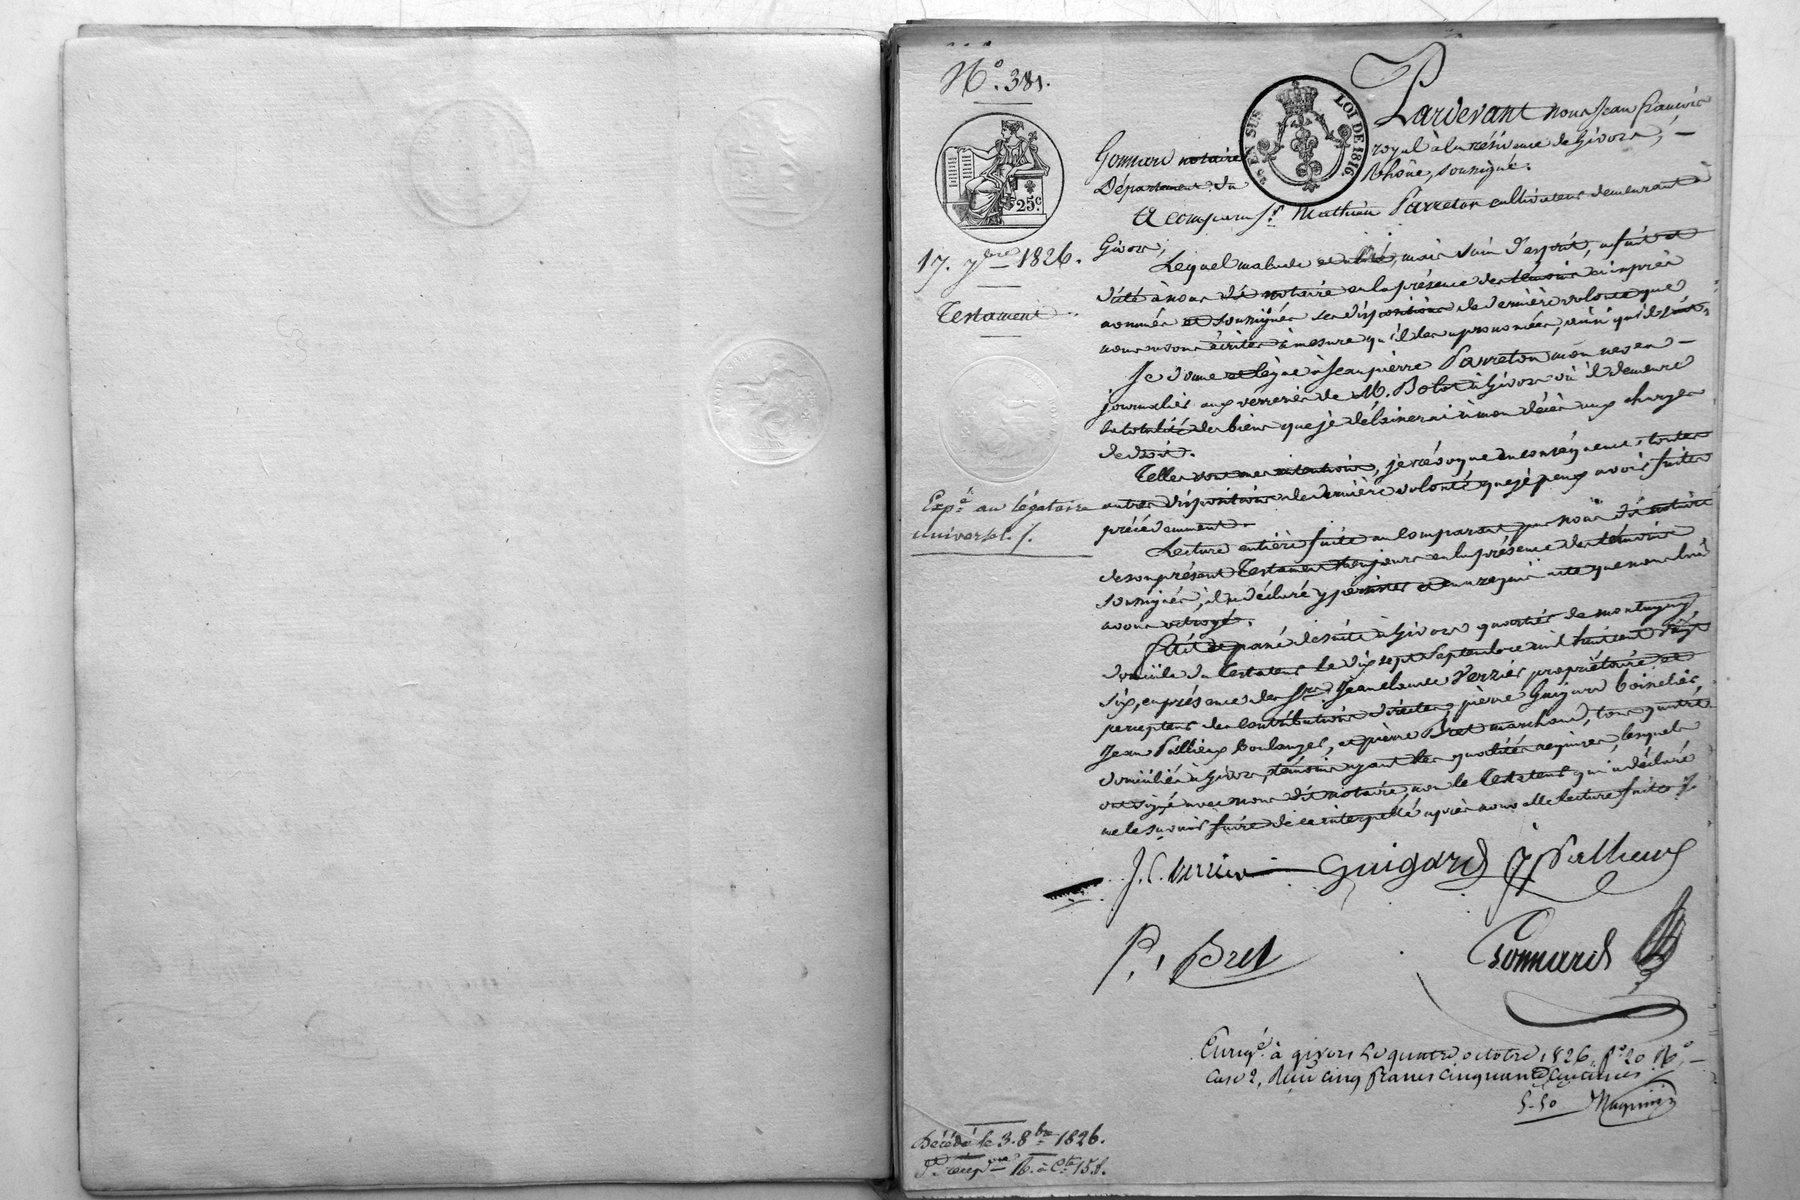 N.° 381.
25 EN SUS
LOI DE 1816
25.c
17. 7bre 1826.
Testament
Expé. au légataire
universel ./.
Pardevant nous Jean françois
Gonnard notaire royal à la résidence de Givors, —
Département du Rhône, soussigné.
A comparu Sr. Mathieu Parreton cultivateur demeurant à
Givors,
Lequel malade mais sain d'esprit, a fait et
dicté à nous dit notaire en la présence des témoins ci après
nommés et soussignés ses dispositions de dernière volonté que
nous avons écrites à mesure qu'il les a prononcées, ainsi qu'il suit,
Je donne et lègue à Jean pierre Parreton mon neveu —
journalier aux verreries de M. Bolot à Givors où il demeure
la totalité des biens que je délaisserai à mon décès aux charges
de droit.
Telles sont mes intentions, je révoque en conséquence toutes
autres dispositions de dernière volonté que je peux avoir faites
précédemment.
Lecture entière faite au comparant par nous dit notaire
de son présent Testament toujours en la présence des témoins
soussignés, il a déclaré y persister et en a requis acte que nous lui
avons octroyé.
Fait et passé de suite à Givors quartier de montagny,
domicile du Testateur le dix sept Septembre mil huit cent vingt
six, en présence des Srs. Jean claude Verrier propriétaire et
percepteur des contributions directes, pierre Guigard boisselier,
Jean Pallieux boulanger, et pierre Bret marchand, tous quatre
domiciliés à Givors, témoins ayant les qualités requises, lesquels
ont signé avec nous dit notaire, non le Testateur qui a déclaré
ne le savoir faire de ce interpellé après nouvelle lecture faite ./.
J. C. Verrier Guigard J Pallieux
P. Bret Gonnard
Enregé. à givors le quatre octobre 1826, f° 20 R°, —
case 2, Reçu cinq francs cinquante centimes
5-50
Décédé le 3. 8bre 1826.